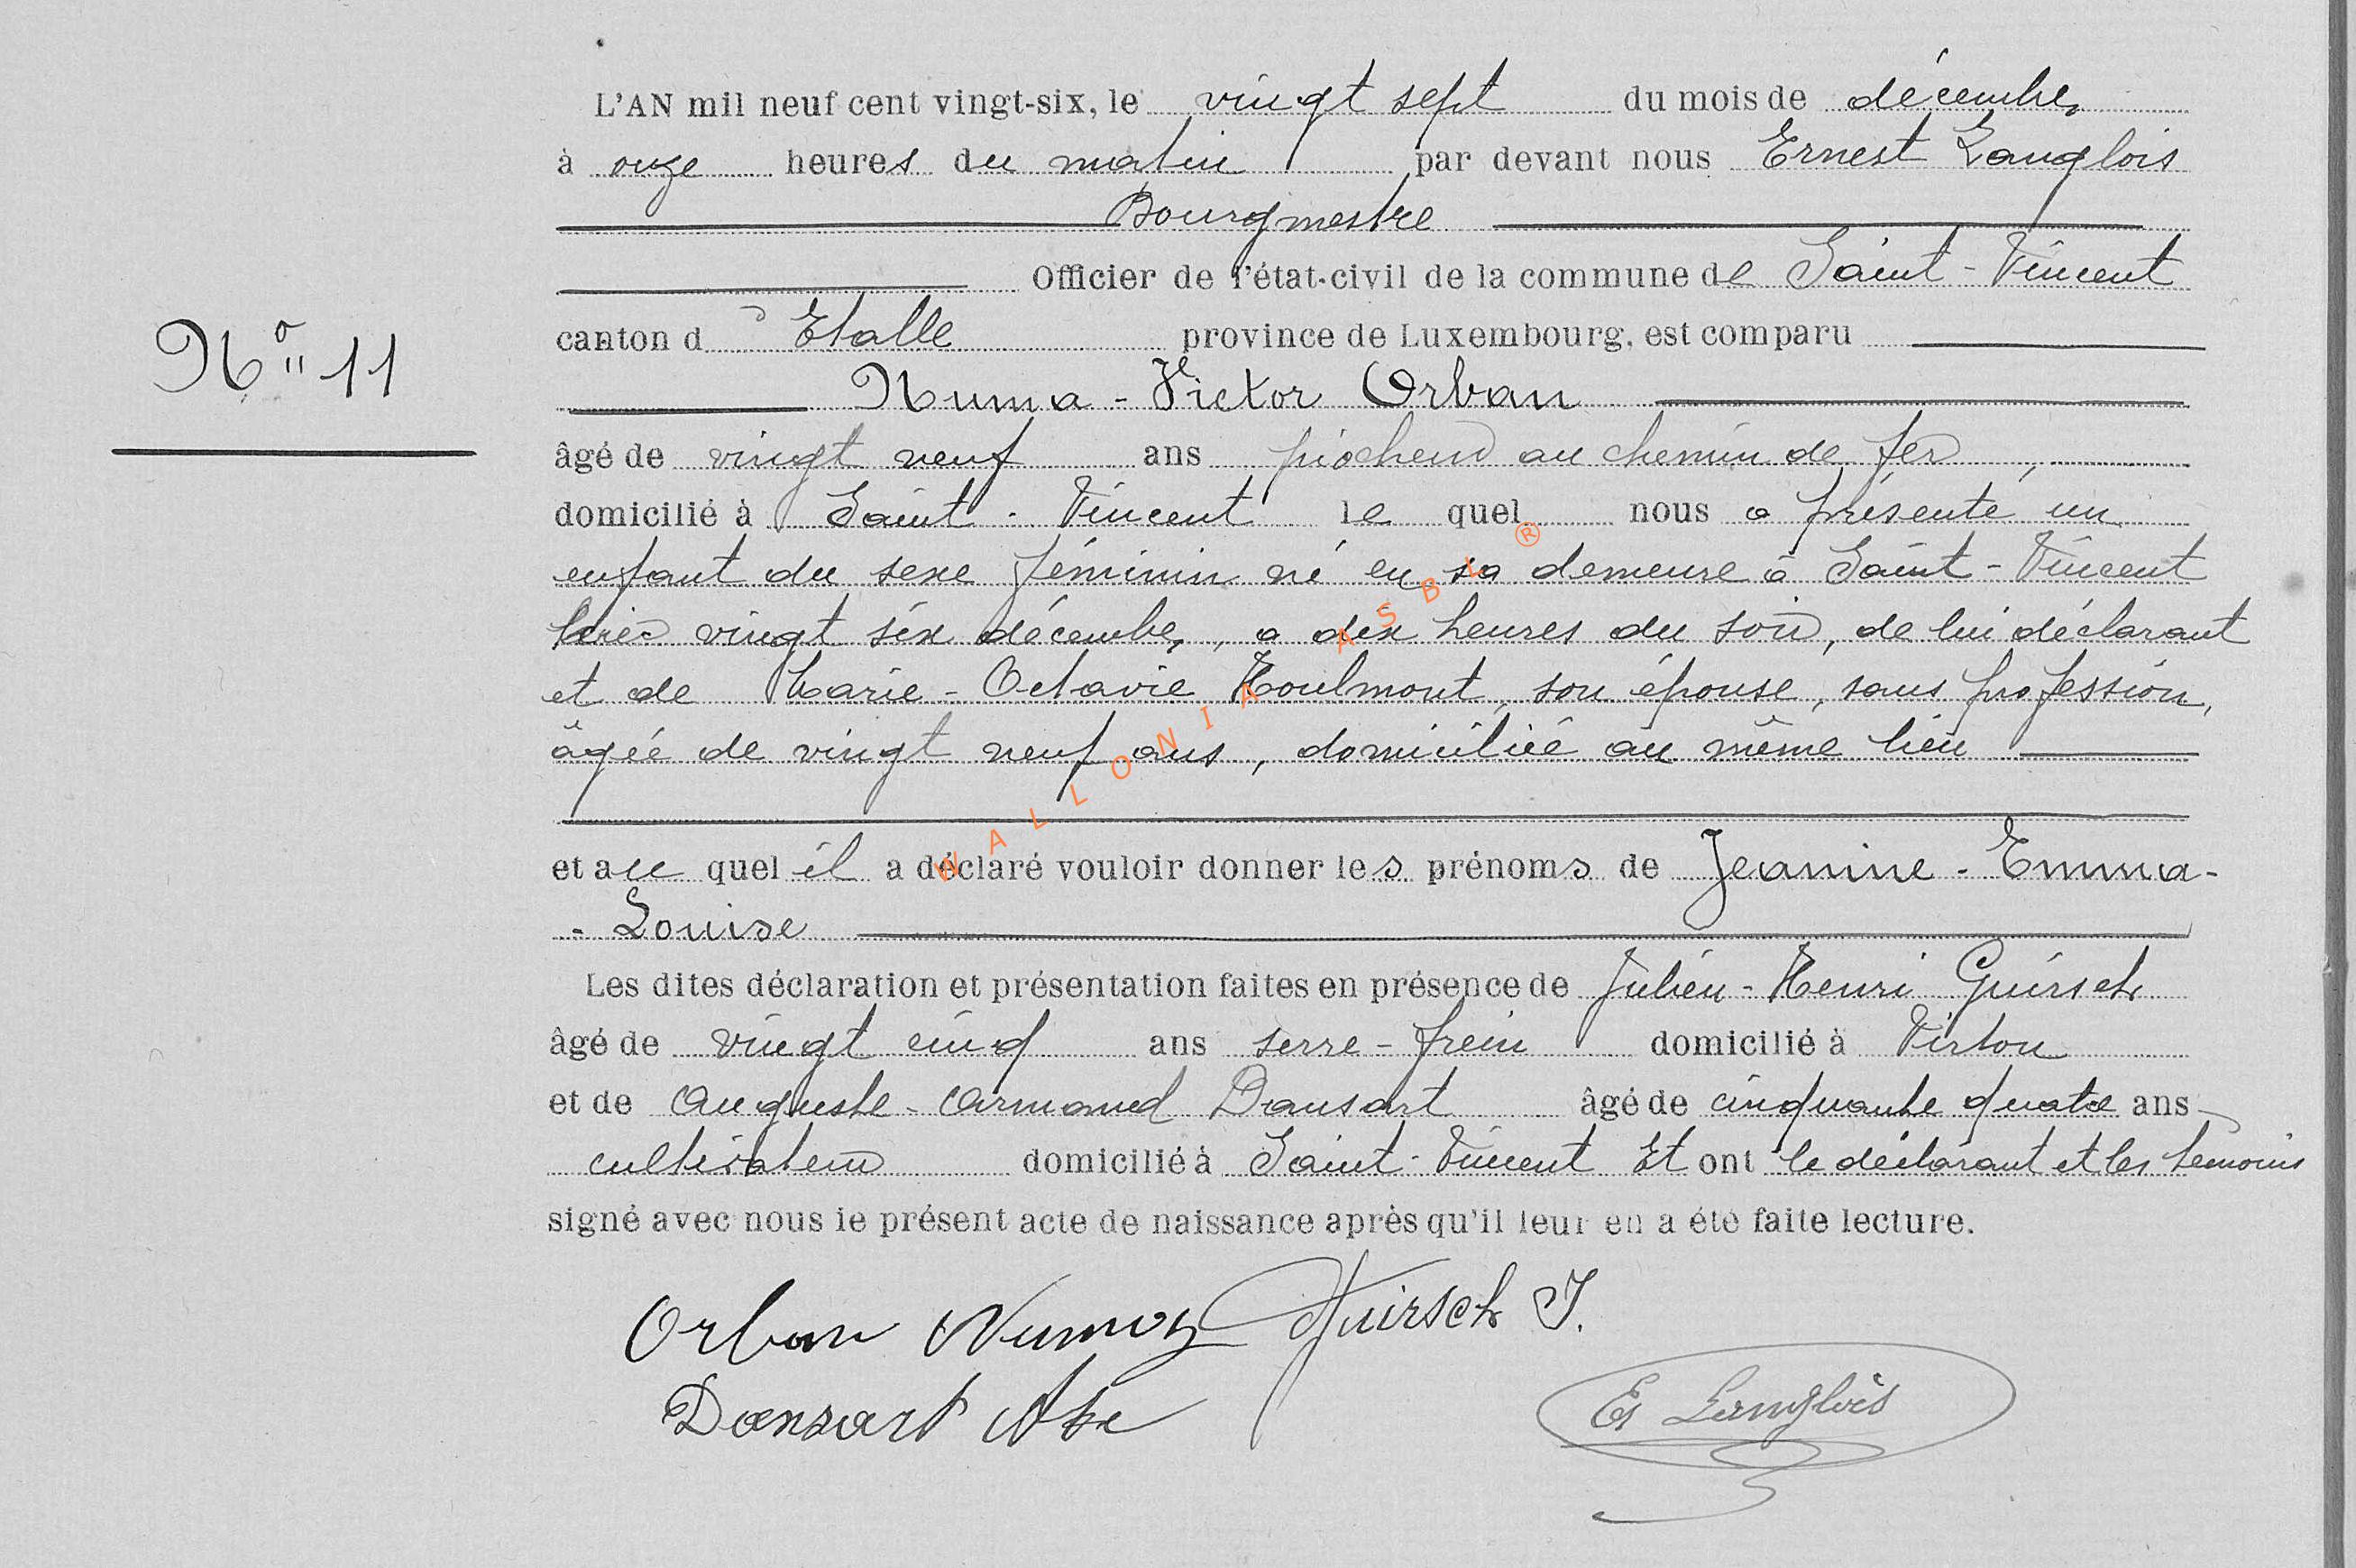 L'AN mil neuf cent vingt-six, le vingt sept du mois de décembre,
à onze heures du matin par devant nous Ernest Langlois
Bourgmestre
Officier de l'état-civil de la commune de Saint-Vincent
N° 11
canton d'Etalle province de Luxembourg, est comparu
Numa-Victor Orban
âgé de vingt neuf ans piocheur au chemin de fer,
domicilié à Saint-Vincent le quel nous a présenté un
enfant du sexe féminin né en sa demeure à Saint-Vincent
hier vingt six décembre, a dix heures du soir, de lui déclarant
et de Marie-Octavie Houlmont, son épouse, sans profession,
âgée de vingt neuf ans, domiciliée au même lieu
et au quel il a déclaré vouloir donner les prénoms de Jeanine-Emma-
-Louise
Les dites déclaration et présentation faites en présence de Julien-Henri Guirsch
âgé de vingt cinq ans serre-frein domicilié à Virton
et de Auguste-Armand Dansart âgé de cinquante quatre ans
cultivateur domicilié à Saint-Vincent Et ont le déclarant et les témoins
signé avec nous le présent acte de naissance après qu'il leur en a été faite lecture.
Orban Numa Guirsch J.
Dansart
Et Langlois
WALLONIA ASBL ®